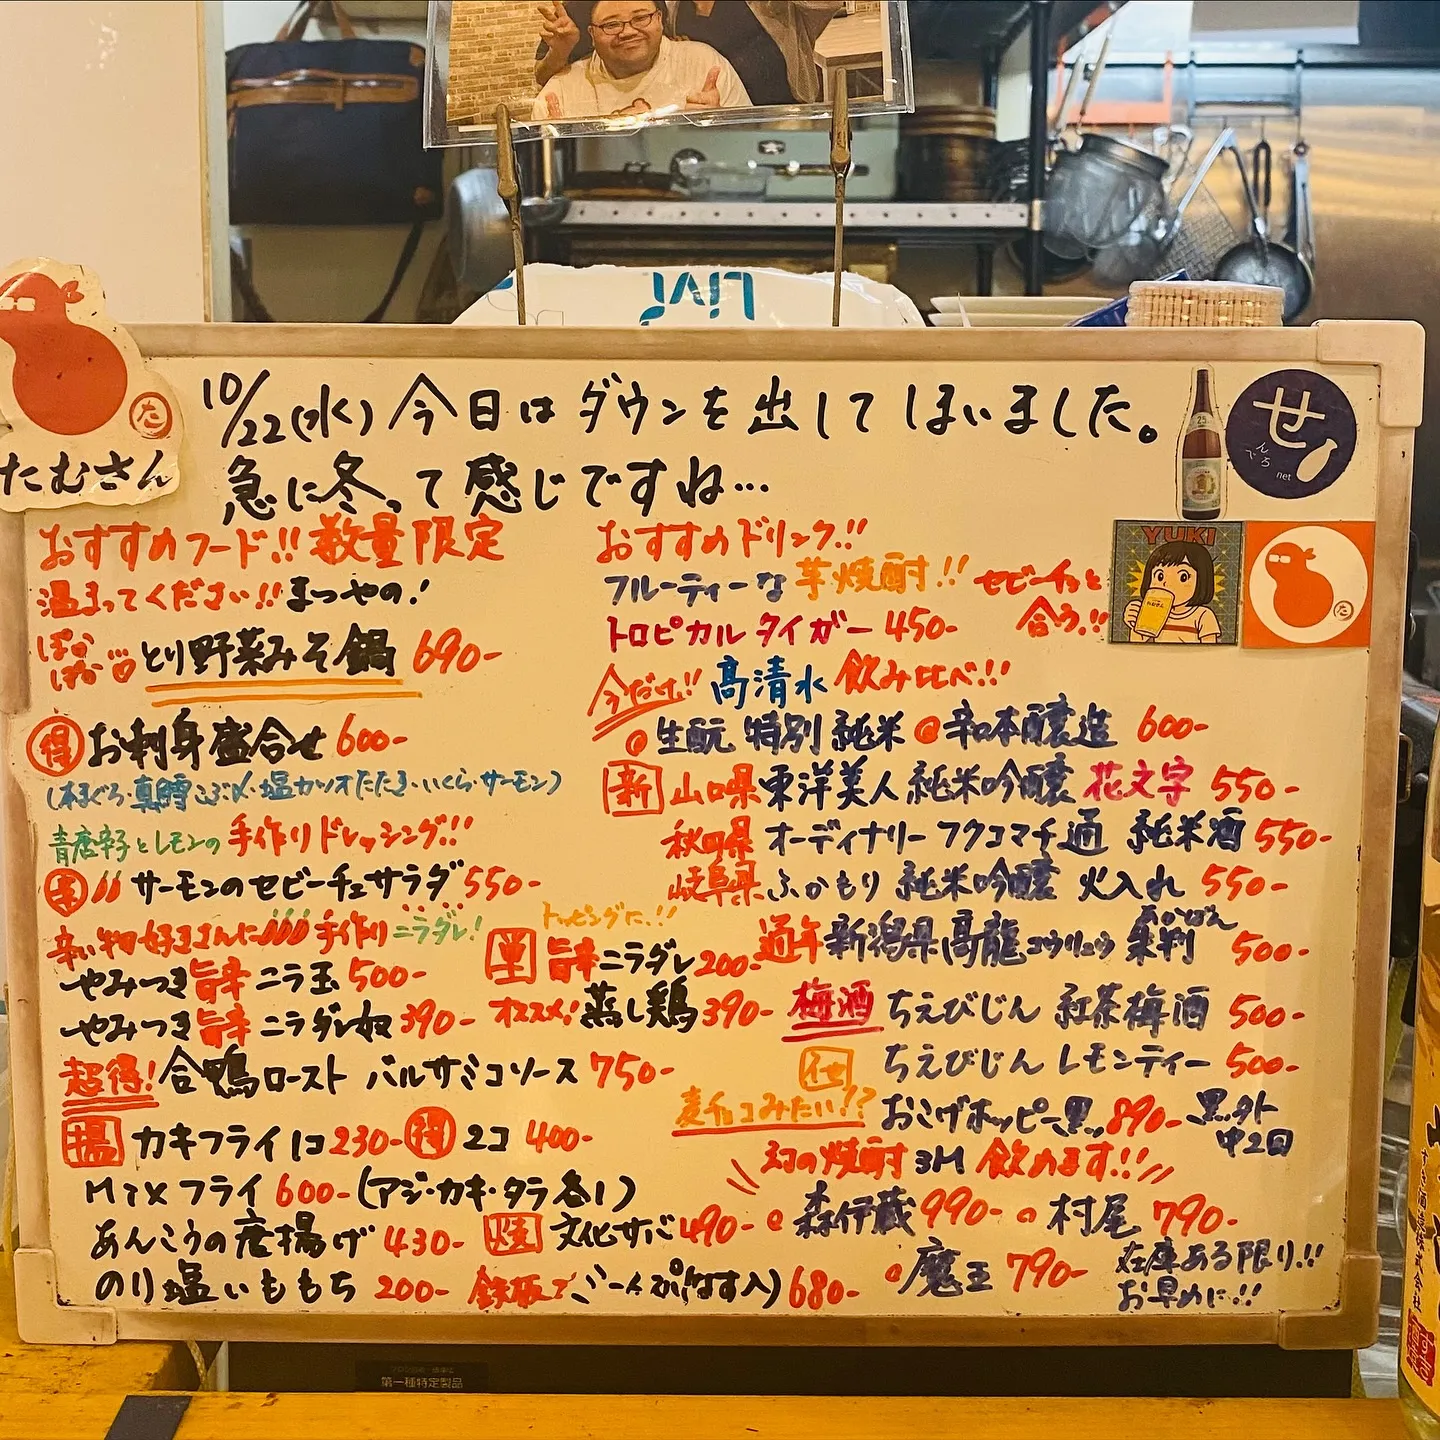 10/22(水) 今日はダウンを出してしまいました。
急に冬って感じですね…
おすすめフード!! 数量限定
温まってください!! まつやの!
ぽかぽか♡ とり野菜みそ鍋 690-
得 お刺身盛合せ 600-
(本まぐろ・真鯛こぶ〆・塩カツオたたき・いくら・サーモン)
青唐辛子とレモンの 手作りドレッシング!!
サーモンのセビーチェサラダ 550-
辛い物好きさんに 手作りニラダレ!
やみつき旨辛ニラ玉 500-
やみつき旨辛ニラダレ奴 390-
トッピングに!!
単 旨辛ニラダレ 200-
オススメ! 蒸し鶏 390-
超得! 合鴨ロースト バルサミコソース 750-
揚 カキフライ 1コ 230- 得 2コ 400-
MIXフライ 600- (アジ・カキ・タラ各1)
あんこうの唐揚げ 430-
焼 文化サバ 490-
のり塩いももち 200-
鉄板で (なす入) 680-
おすすめドリンク!!
フルーティーな 芋焼酎!! セビーチェと合う!!
トロピカルタイガー 450-
今だけ!! 高清水 飲み比べ!!
生酛 特別純米 辛口本醸造 600-
新 山口県 東洋美人 純米吟醸 花文字 550-
秋田県 オーディナリーフクコマチ 純米酒 550-
岐阜県 ふかもり 純米吟醸 火入れ 550-
通年 新潟県 高龍 コウリュウ あかばん 赤判 500-
梅酒 ちえびじん 紅茶梅酒 500-
他 ちえびじん レモンティー 500-
麦チョコみたい!? おこげホッピー黒 890- 黒外中2回
幻の焼酎3M 飲めます!!
森伊蔵 990- 村尾 790-
魔王 790- 在庫ある限り!! お早めに!!
たむさん
た
せ
んべろ
net
YUKI
た
第一種特定製品